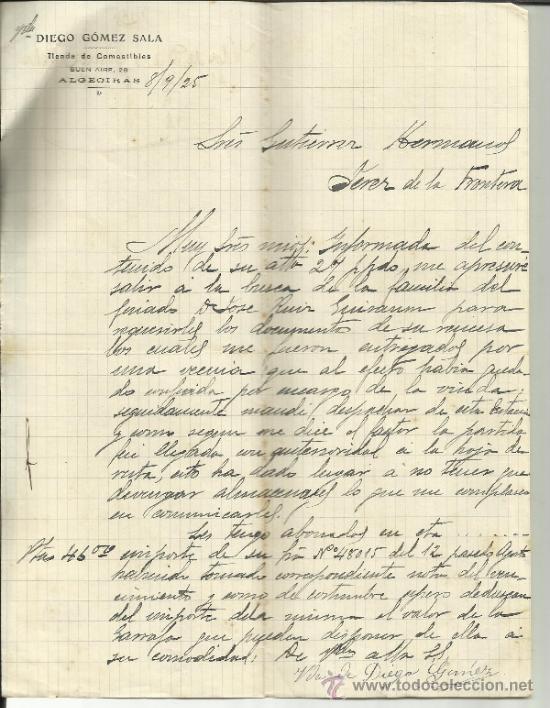 DIEGO GÓMEZ SALA
Tienda de Comestibles
BUEN AIRE, 28
ALGECIRAS
8/9/25
Sres Gutierrez Hermanos
Jerez de la Frontera
Muy Sres mios: Informada del con-
tenido de su atta 27 ppdo, me apresuré
salir a la busca de la familia del
finado Dn Jose Ruiz para
los documentos de su
los cuales me fueron entregados por
una vecina que al efecto había queda-
do por encargo de la viuda;
seguidamente mandé despachar de esta
y como segun me dice el factor la partida
fué llegada con anterioridad á la hoja de
ruta, esto ha dado lugar á no tener que
devengar almacenajes lo que me complazco
en comunicarles.
Les tengo abonados en cta
Ptas 46 importe de su fra Nº 48015 del 12 pasado Agosto
habiendo tomado correspondiente nota del ven-
cimiento y como de costumbre espero deduzcan
del importe de la misma el valor de la
garrafa que pueden disponer de ella á
su comodidad; De Vdes atta SS
Vda de Diego Gómez
www.todocoleccion.net